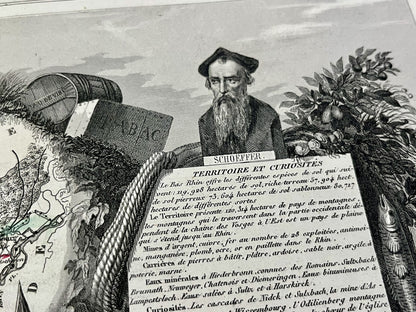 EAU DE VIE
TABAC
SCHOEFFER.
TERRITOIRE ET CURIOSITÉS
Le Bas Rhin offre les différentes espèces de sol qui sui-
vent: hectares de sol, riche terreau 57,904 hect
de sol pierreux 73,604 hect de sol sablonneux 80,727
hectares de différentes sortes.
Le Territoire présente hectares de pays de montagnes,
les montagnes qui le couvrent dans la partie occidentale dé-
pendent de la chaîne des Vosges à l'Est est un pays de plaine
qui s'étend jusqu'au Rhin.
Mines d'argent, cuivre, fer au nombre de 28 exploitées, antimoi-
ne, manganèse, plomb, ocre, or en paillette dans le Rhin.
Carrières de pierres à bâtir, plâtre, ardoise, sable noir, argile à
poterie, marne.
Eaux minérales à connues des Romains, Sultzbach
Brumath, Neuweyer, Chatenois et Diemeringen. Eaux bitumineuses à
Lampertsloch. Eaux salées à Sultz et à Harskirck.
Curiosités. Les cascades de Nideck et Sulzbach, la mine d'As-
Wissembourg. l'Odilienberg montagne
le chœur de l'église
D E